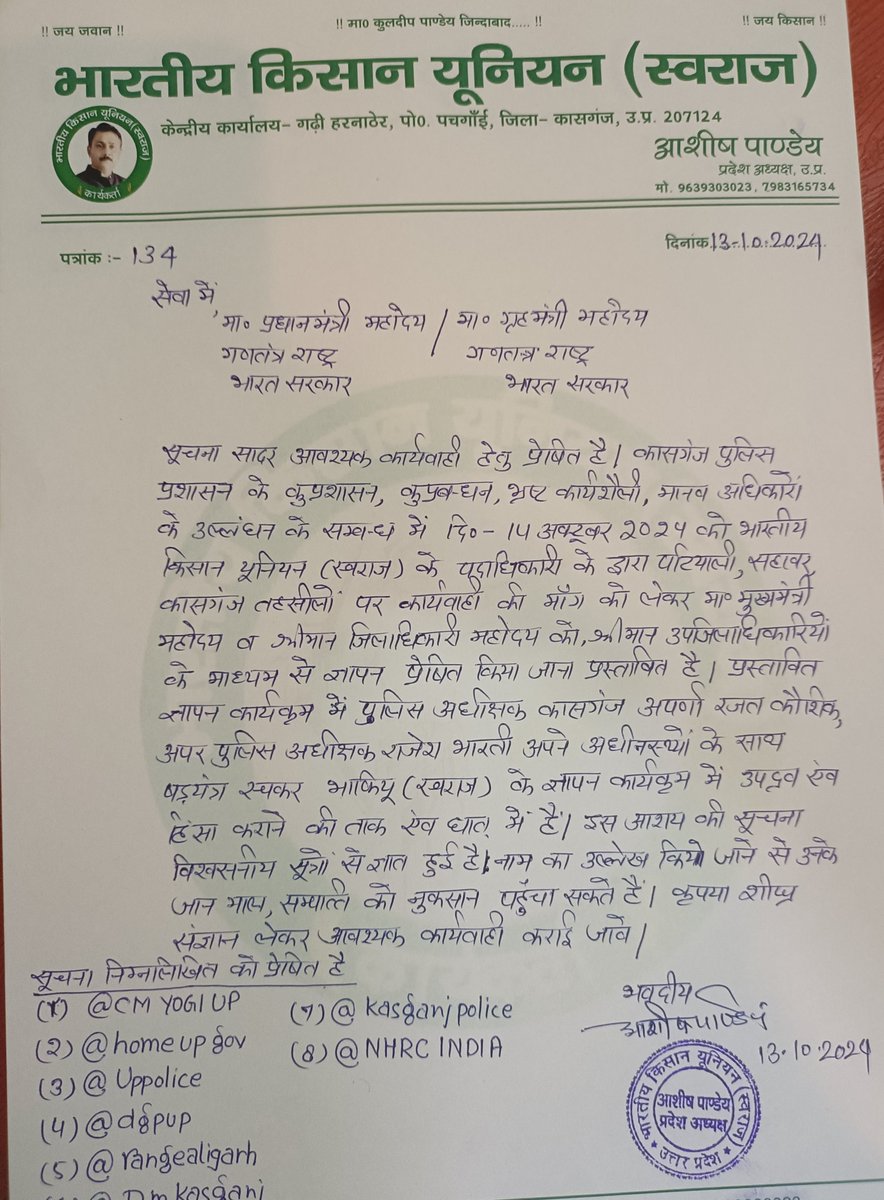 !! जय जवान !!
!! मा0 कुलदीप पाण्डेय जिन्दाबाद..... !!
!! जय किसान !!
भारतीय किसान यूनियन (स्वराज)
भारतीय किसान यूनियन (स्वराज)
कार्यकर्ता
केन्द्रीय कार्यालय- गढ़ी हरनाठेर, पो0. पचगाँई, जिला- कासगंज, उ.प्र. 207124
आशीष पाण्डेय
प्रदेश अध्यक्ष, उ.प्र.
मो. 9639303023, 7983165734
पत्रांक :- 134
दिनांक 13-10-2024
सेवा में,
मा० प्रधानमंत्री महोदय / मा० गृहमंत्री महोदय
गणतंत्र राष्ट्र गणतन्त्र राष्ट्र
भारत सरकार भारत सरकार
सूचना सादर आवश्यक कार्यवाही हेतु प्रेषित है। कासगंज पुलिस
प्रशासन के कुप्रशासन, कुप्रबन्धन, भ्रष्ट कार्यशैली, मानव अधिकारों
के उल्लंघन के सम्बन्ध में दि०- 14 अक्टूबर 2024 को भारतीय
किसान यूनियन (स्वराज) के पदाधिकारी के द्वारा पटियाली, सहावर,
कासगंज तहसीलों पर कार्यवाही की माँग को लेकर मा० मुख्यमंत्री
महोदय व श्रीमान जिलाधिकारी महोदय को, श्रीमान उपजिलाधिकारियों
के माध्यम से ज्ञापन प्रेषित किया जाना प्रस्तावित है। प्रस्तावित
ज्ञापन कार्यक्रम में पुलिस अधीक्षक कासगंज अपर्णा रजत कौशिक,
अपर पुलिस अधीक्षक राजेश भारती अपने अधीनस्थों के साथ
षड़यंत्र रचकर भाकियू (स्वराज) के ज्ञापन कार्यक्रम में उपद्रव ऐंव
हिंसा कराने की ताक ऐंव घात में हैं। इस आशय की सूचना
विश्वसनीय सूत्रों से ज्ञात हुई है। नाम का उल्लेख किये जाने से उनके
जान माल, सम्पत्ति को नुकसान पहुँचा सकते हैं। कृपया शीघ्र
संज्ञान लेकर आवश्यक कार्यवाही कराई जावे।
सूचना निम्नलिखित को प्रेषित है
(1) @CM YOGI UP
(2) @homeupgov
(3) @Uppolice
(4) @dgpup
(5) @rangealigarh
@Dmkasganj
(7) @kasganjpolice
(8) @NHRC INDIA
भवदीय
आशीष पाण्डेय
13.10.2024
भारतीय किसान यूनियन (स्वराज)
आशीष पाण्डेय
प्रदेश अध्यक्ष
उत्तर प्रदेश